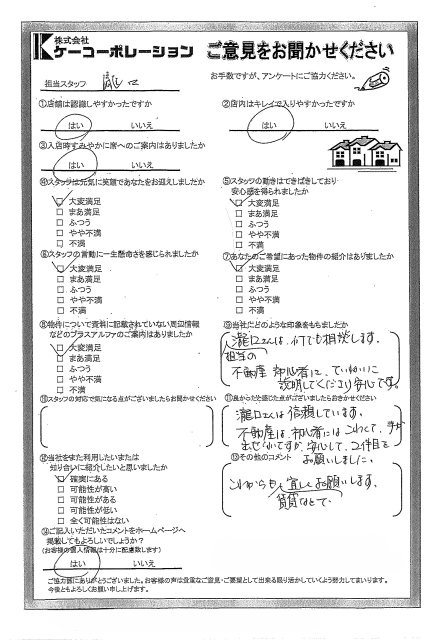 株式会社
ケーコーポレーション
ご意見をお聞かせください
担当スタッフ 瀧口
お手数ですが、アンケートにご協力ください。
①店舗は認識しやすかったですか
はい いいえ
②店内はキレイで入りやすかったですか
はい いいえ
③入店時すみやかに席へのご案内はありましたか
はい いいえ
④スタッフは元気に笑顔であなたをお迎えしましたか
大変満足
まあ満足
ふつう
やや不満
不満
⑤スタッフの動きはてきぱきしており
安心感を得られましたか
大変満足
まあ満足
ふつう
やや不満
不満
⑥スタッフの言動に一生懸命さを感じられましたか
大変満足
まあ満足
ふつう
やや不満
不満
⑦あなたのご希望にあった物件の紹介はありましたか
大変満足
まあ満足
ふつう
やや不満
不満
⑧物件について資料に記載されていない周辺情報
などのプラスアルファのご案内はありましたか
大変満足
まあ満足
ふつう
やや不満
不満
⑨当社にどのような印象をもちましたか
瀧口さんは、何でも相談します。
担当の
不動産 初心者に、ていねいに
説明してくださり安心です。
⑩スタッフの対応で気になる点がございましたらお聞かせください
⑪良かったと感じた点がございましたらおきかせください
瀧口さんは信頼しています。
不動産は、初心者にはこわくて、
ですが、安心して、2件目を
お願いしました。
⑫当社をまた利用したいまたは
知り合いに紹介したいと思いましたか
確実にある
可能性が高い
可能性がある
可能性が低い
全く可能性はない
⑬その他のコメント
これからも、宜しくお願いします。
賃貸などで。
⑭ご記入いただいたコメントをホームページへ
掲載してもよろしいでしょうか?
(お客様の個人情報は十分に配慮致します)
はい いいえ
ご協力誠にありがとうございました。お客様の声は貴重なご意見・ご要望として出来る限り活かしていくよう努力してまいります。
今後ともよろしくお願い申し上げます。